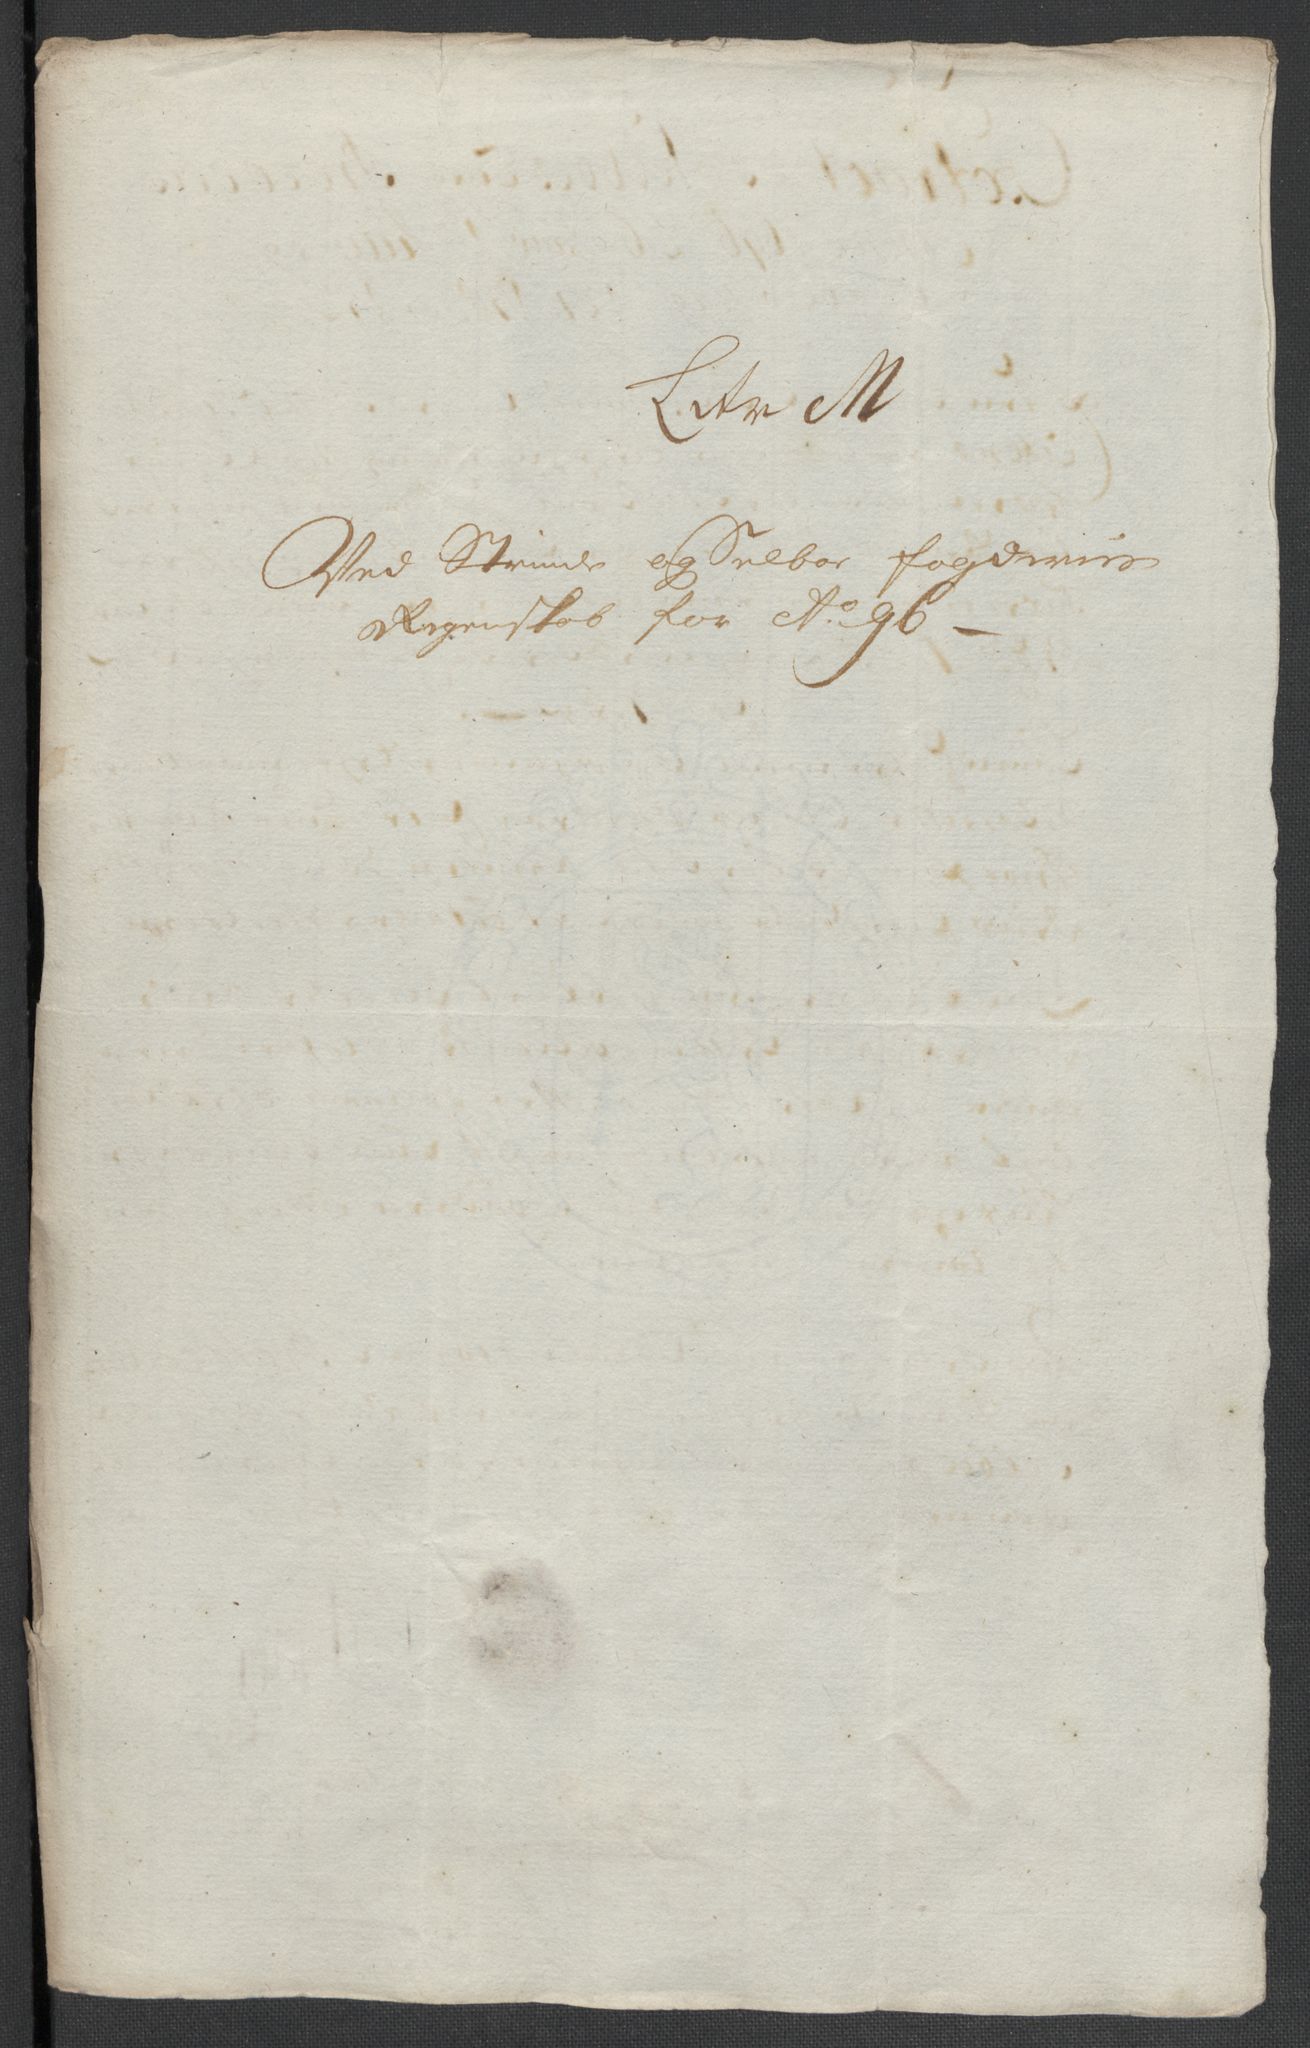 Litr M
Ved Strinde og Selboe fogderiis
Regenskab for Ao. 96 –